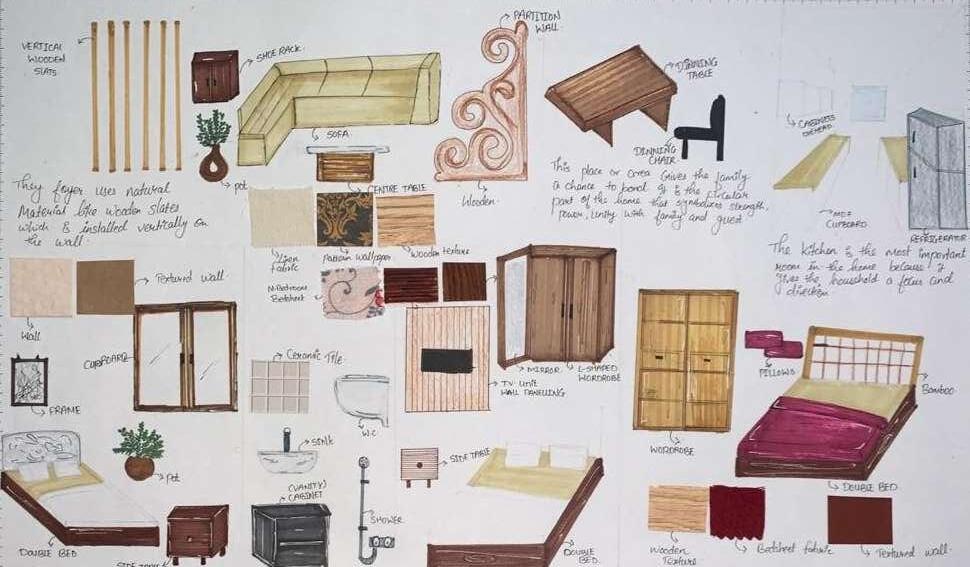 VERTICAL
WOODEN
SLATS.
SHOE RACK.
pot
They foyer uses natural
Material like wooden slates
which is installed vertically on
the wall.
SOFA
CENTRE TABLE
PARTITION
WALL.
Wooden.
DINNING
TABLE
DINNING
CHAIR
This place or area gives the family
a chance to bond
part of the home that symbolizes strength,
power, unity with family and guest
CABINETS
OVERHEAD
MDF
CUPBOARD
REFRIGERATOR
The kitchen is the most important
room in the home because it
gives the household a focus and
direction
Fabric
Pattern wallpaper
Wooden texture
Textured wall
Wall
M.Bedroom
Betsheet
CUPBOARD
FRAME
Ceramic Tile
W.C
MIRROR
L-SHAPED
WORDROBE
TV-UNIT
WALL PANELLING
WORDROBE
PILLOWS
Bamboo
DOUBLE BED
pot
DOUBLE BED
SIDE TABLE
SINK
(VANITY)
CABINET
SHOWER
SIDE TABLE
DOUBLE
BED.
Wooden
Texture
Betsheet fabric
Textured wall.